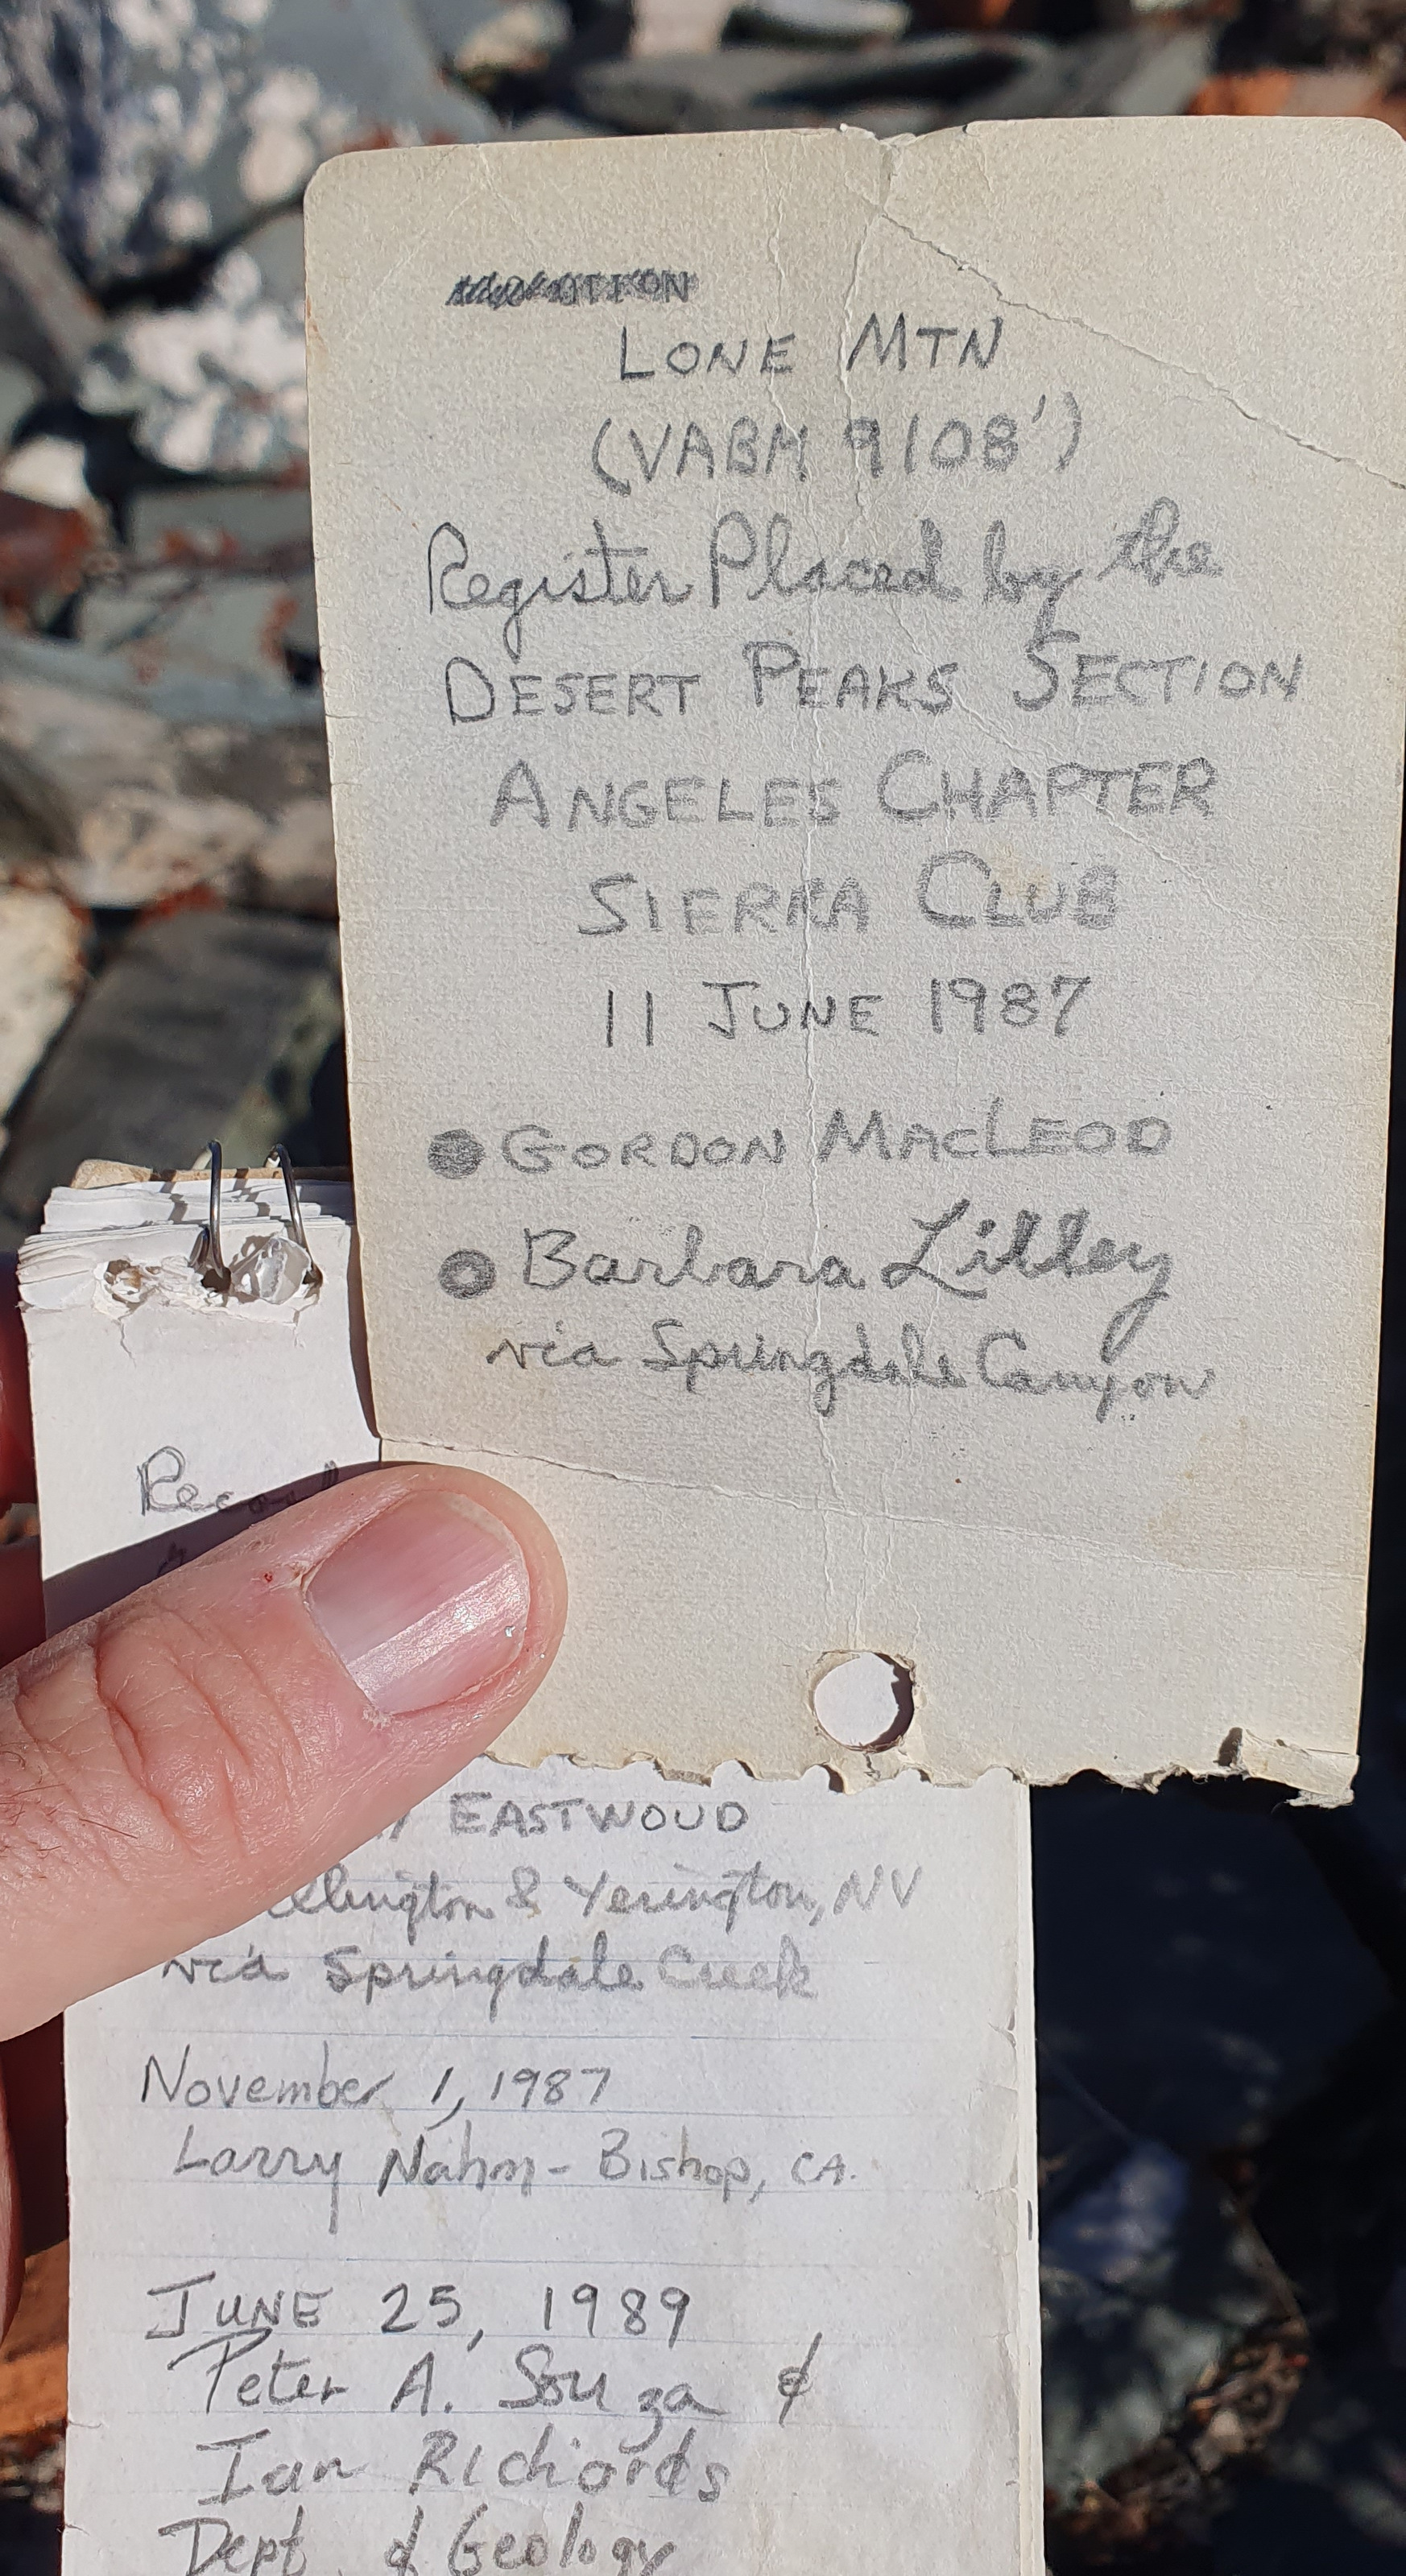 LONE MTN
(VABM 9108')
Register Placed by the
DESERT PEAKS SECTION
ANGELES CHAPTER
SIERRA CLUB
11 JUNE 1987
GORDON MACLEOD
Barbara Lilley
via Springdale Canyon
EASTWOOD
& Yerington, NV
via Springdale Creek
November 1, 1987
Larry Nahm - Bishop, CA.
JUNE 25, 1989
Peter A. Souza &
Ian Richards
Dept. of Geology